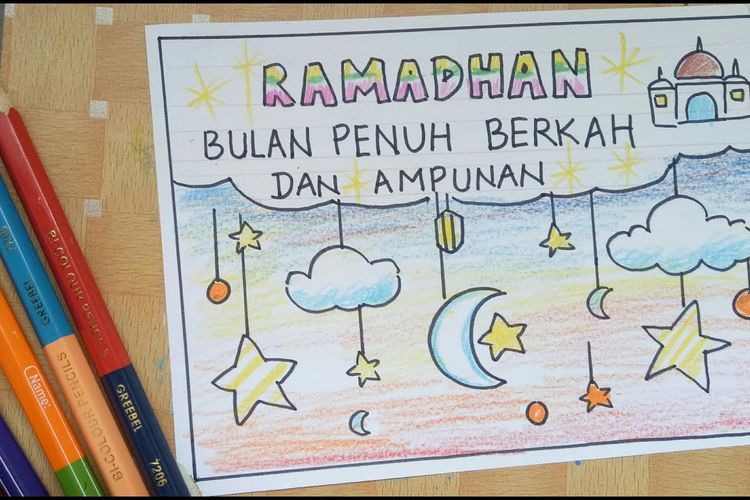 RAMADHAN
BULAN PENUH BERKAH
DAN AMPUNAN
GREEBEL
Name:
BI-COLOUR PENCILS
GREEBEL
7206